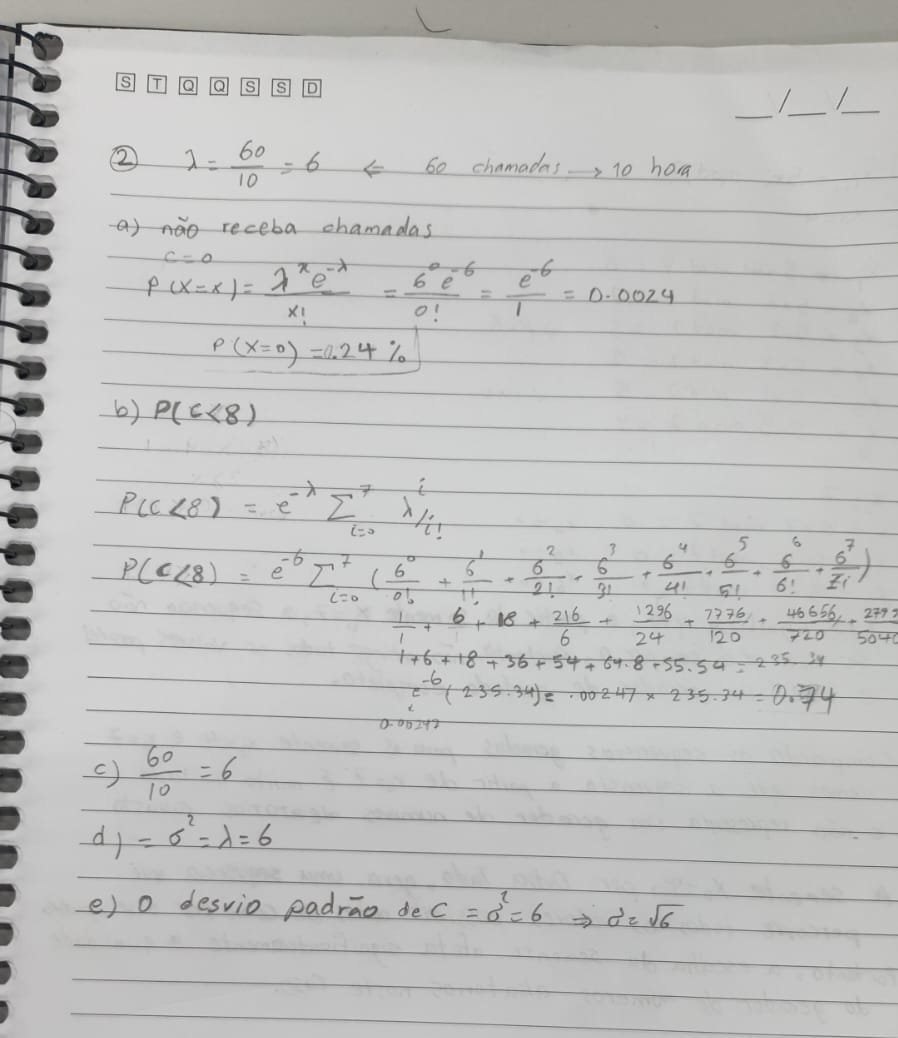 S T Q Q S S D
__/__/__
② λ = 60/10 = 6 ⇐ 60 chamadas → 10 hora
a) não receba chamadas
C=0
P(X=x) = λ^x e^-λ / x! = 6^0 e^-6 / 0! = e^-6 / 1 = 0.0024
P(X=0) = 0.24 %
b) P(C<8)
P(C<8) = e^-λ Σ_{i=0}^7 λ^i/i!
P(C<8) = e^-6 Σ_{i=0}^7 (6^0/0! + 6^1/1! + 6^2/2! + 6^3/3! + 6^4/4! + 6^5/5! + 6^6/6! + 6^7/7!)
1/1 + 6 + 18 + 216/6 + 1296/24 + 7776/120 + 46656/720 + 2799/5040
1+6+18+36+54+64.8+55.54 = 235.34
e^-6 (235.34) = .00247 × 235.34 = 0.74
0.00247
c) 60/10 = 6
d) = σ² = λ = 6
e) O desvio padrão de C = σ² = 6 ⇒ σ = √6